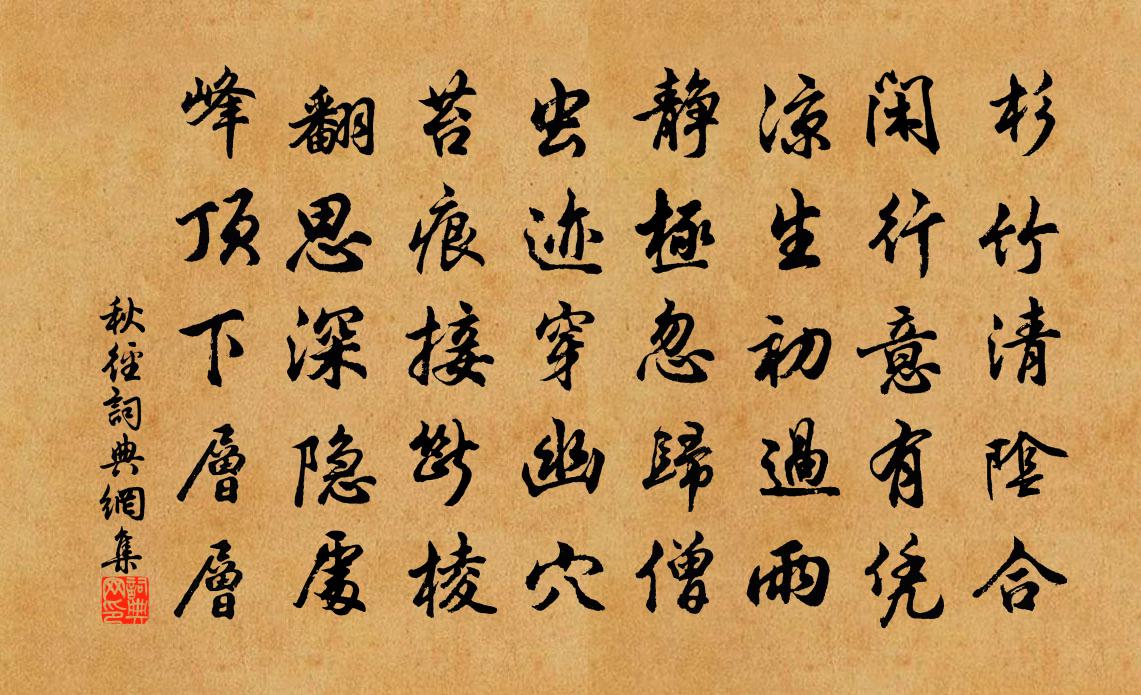 杉竹清陰合
闲行意有凭
凉生初過雨
静極忽歸僧
虫迹穿幽穴
苔痕接斷棱
翻思深隐處
峰顶下層層
秋徑詞典網集
詞典网印